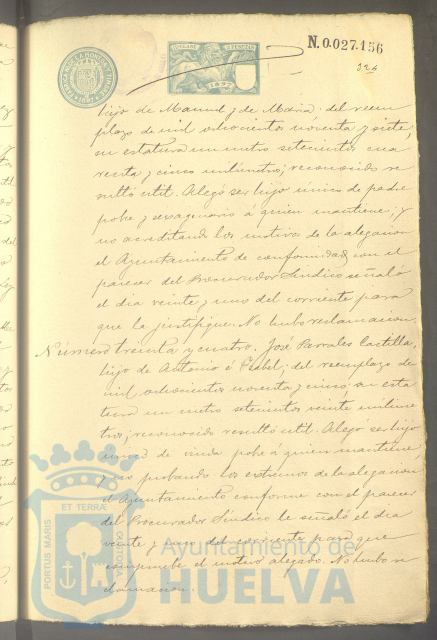 N.0.027.156
324
hijo de Manuel y de Maria: del reem
plazo de mil ochocientos noventa y siete,
su estatura un metro setecientos cua
renta y cinco milimetros; reconocido re
sultó util. Alegó ser hijo único de padre
pobre y sexagenario á quien mantiene; y
no acreditando los motivos de la alegacion
el Ayuntamiento de conformidad con el
parecer del Procurador Síndico señaló
el dia veinte y uno del corriente para
que la justifique. No hubo reclamacion.
Número treinta y cuatro. José Parrales Castilla,
hijo de Antonio é Isabel; del reemplazo de
mil ochocientos noventa y cinco su esta
tura un metro setecientos veinte milime
tros; reconocido resultó util. Alegó ser hijo
de viuda pobre á quien mantiene,
y no probando los extremos de la alegacion
el Ayuntamiento conforme con el parecer
del Procurador Síndico le señaló el dia
veinte y uno del corriente para que
compruebe el motivo alegado. No hubo re
clamacion.
ET TERRA
PORTUS MARIS
CUSTODIA
Ayuntamiento de
HUELVA